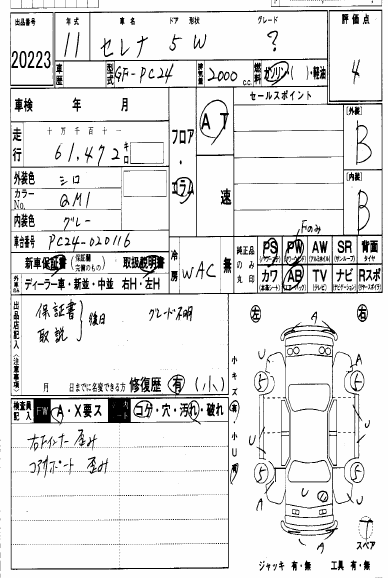 出品番号 年式 車名 ドア 形状 グレード 評価点
20223 11 セレナ 5 W ? 4
車歴 型式 GF-PC24 排気量 2000 c.c. 燃料 ガソリン・( )・軽油
車検 年 月 フロア・コラム AT 速 セールスポイント
走行 十万千百十一 61,472 キロ
[外装] B
外装色 シロ
カラーNo. QM1
[内装] B
内装色 グレー
車台番号 PC24-020116
Fのみ
新車保証書(保証欄完備のもの) 取扱説明書 冷房 WAC 無 純正品のみ丸印 PS PW AW SR 背面タイヤ
ディーラー車・新並・中並 右H・左H カワ AB TV ナビ Rスポ
出品店記入(注意事項) 保証書 取説 後日 グレード不明
左 右
月 日までに名変できる方 修復歴 有 (小)
小キズ有・小U有
検査員記入 FW A・X要ス コゲ・穴・汚れ・破れ
右Fインナー歪み
コアサポート歪み
U
A
5 5
U U
5 5
A A
U
A
T
スペア
ジャッキ 有・無 工具 有・無